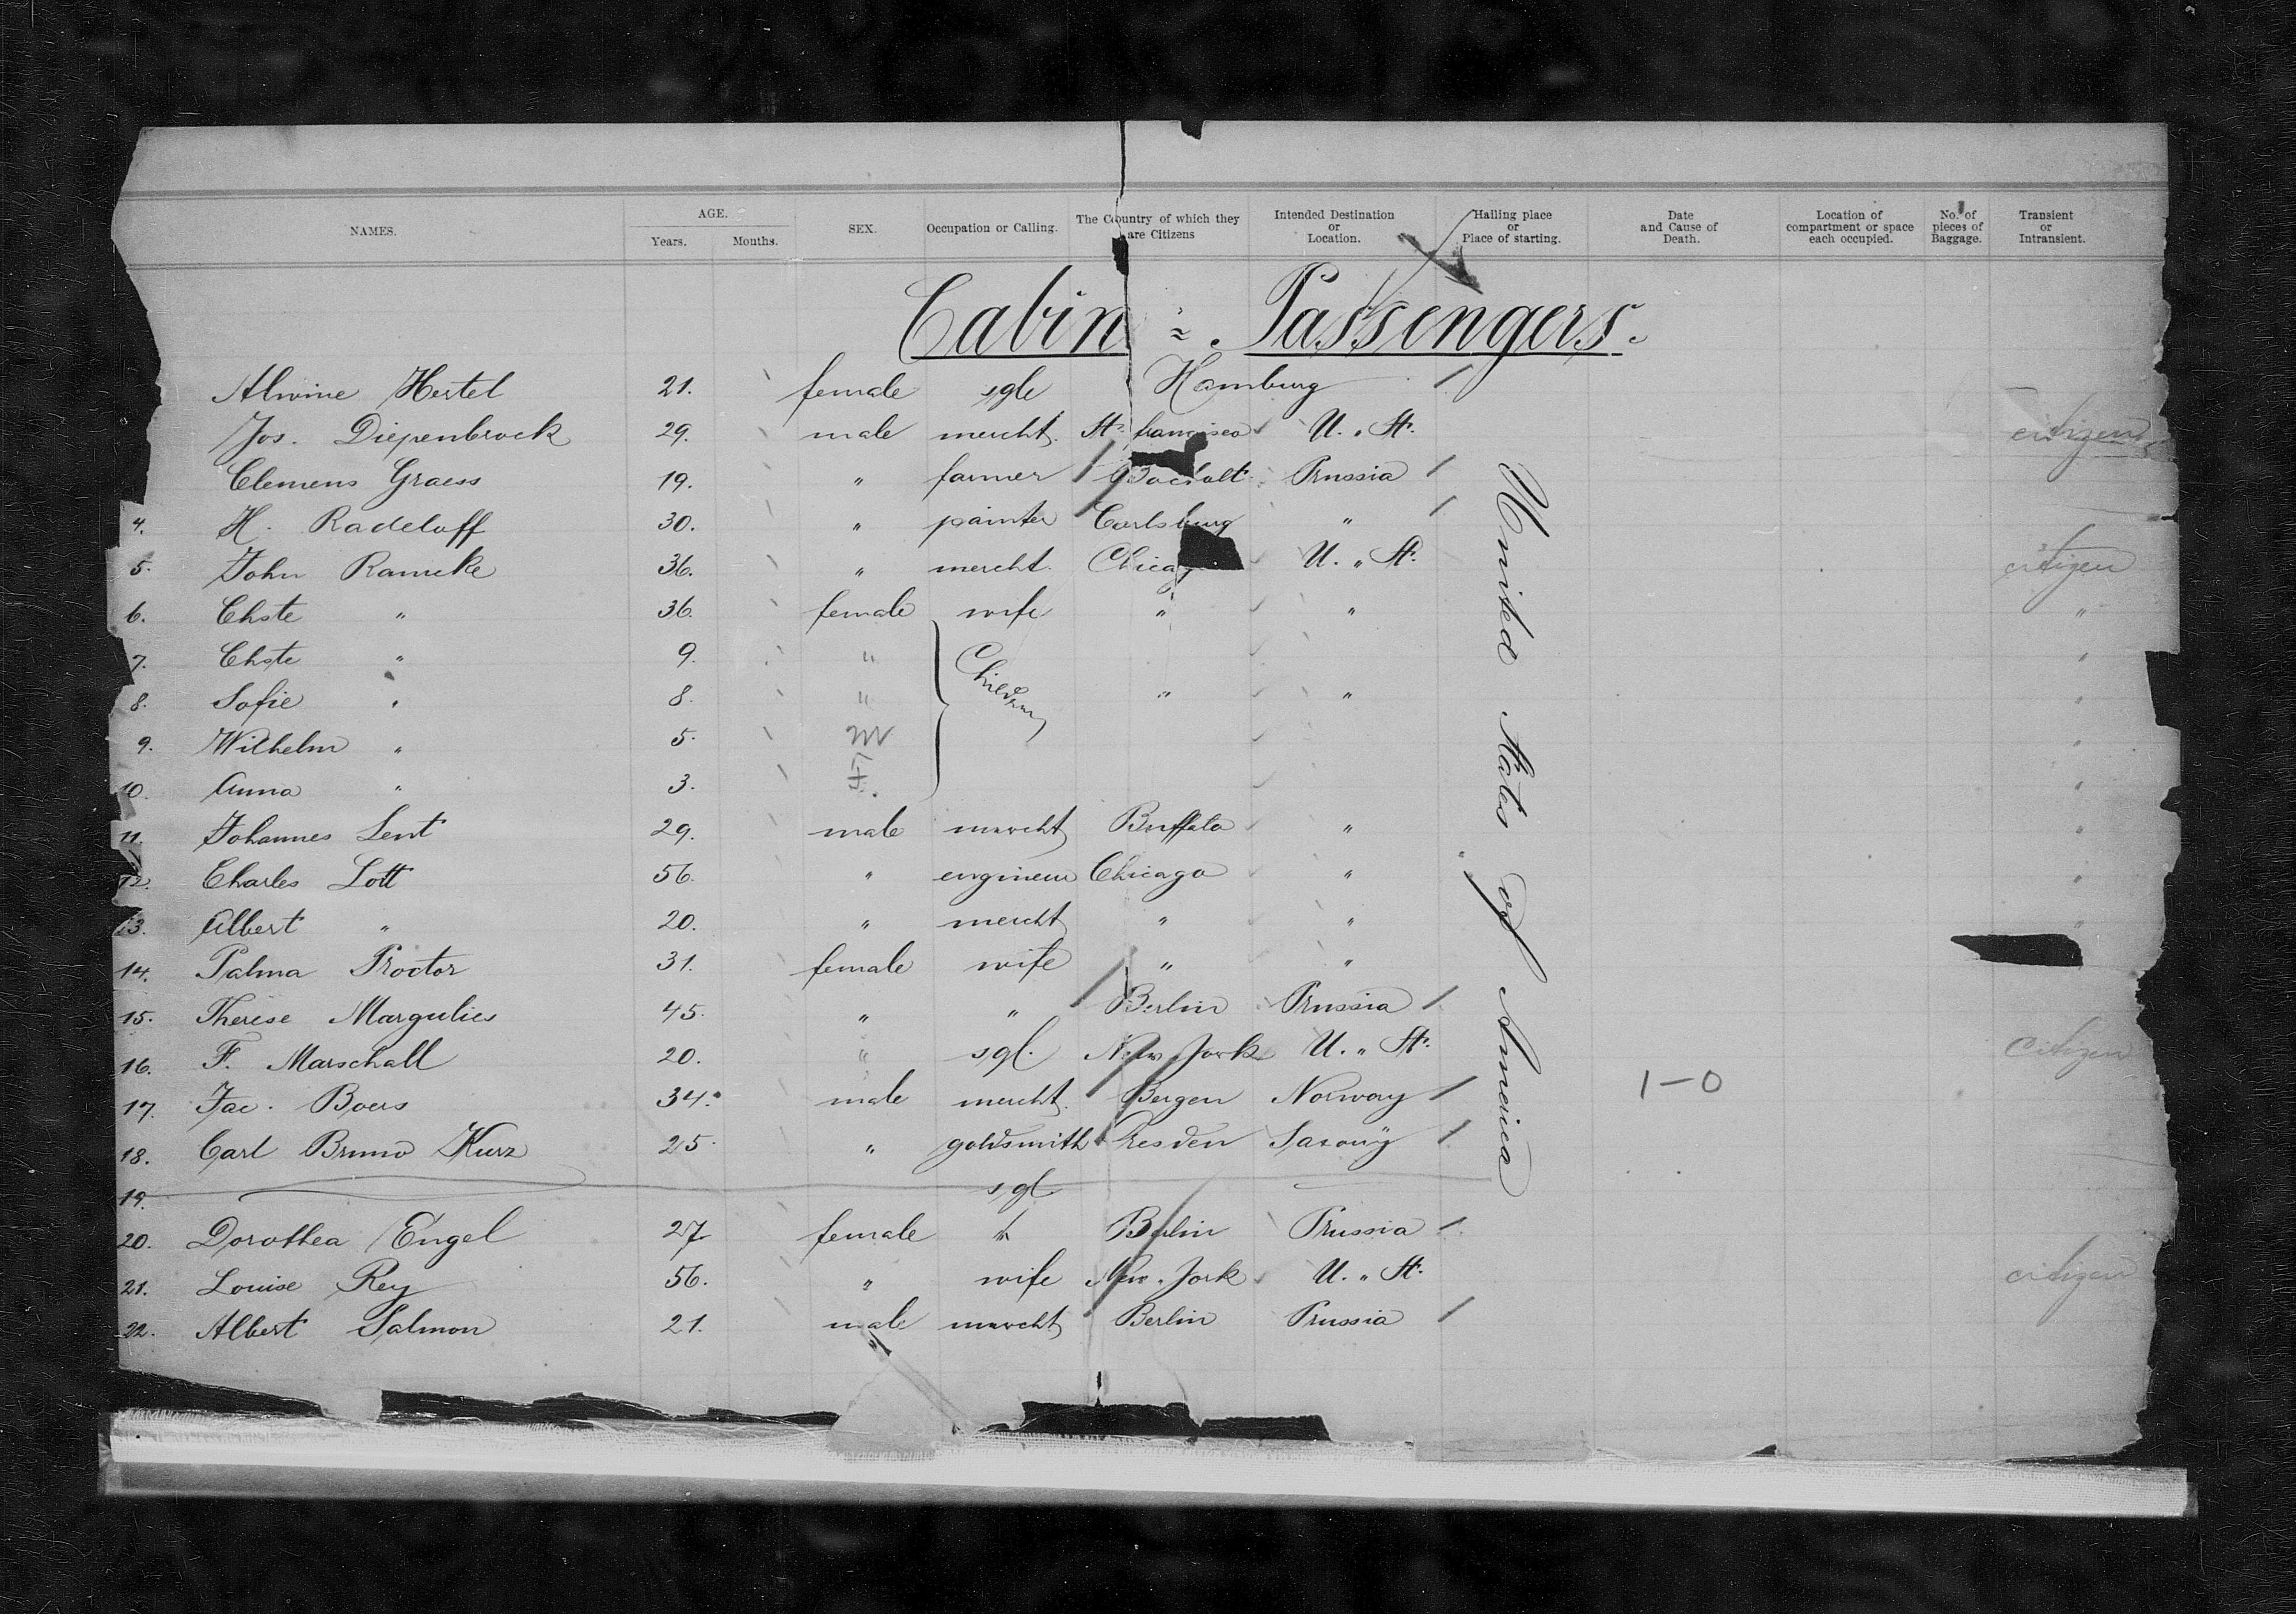 NAMES. AGE. Years. Months. SEX. Occupation or Calling. The Country of which they are Citizens Intended Destination or Location. Hailing place or Place of starting. Date and Cause of Death. Location of compartment or space each occupied. No. of pieces of Baggage. Transient or Intransient.
Cabin = Passengers.
Alwine Hertel 21. female sgle Hamburg
Jos. Diepenbrock 29. male mercht. St. francisco U. " St. citizen
Clemens Graess 19. " farmer Prussia
4. H. Radeloff 30. " painter Carlsburg "
5. John Ramcke 36. " mercht. U. " St. citizen
6. Chste " 36. female wife " " "
7. Chste " 9. " Children "
8. Sofie " 8. " " " "
9. Wilhelm " 5. M "
10. Anna " 3. F. "
11. Johannes Lent 29. male mercht Buffalo " "
12. Charles Lott 56. " engineur Chicago " "
13. Albert " 20. " mercht " " "
14. Palma Proctor 31. female wife " "
15. Therese Margulies 45. " " Berlin Prussia
16. F. Marschall 20. " sgl. New Jork U. " St. Citizen
17. Jac. Boers 34. male mercht. Bergen Norway 1-0
18. Carl Bruno Kurz 25. " goldsmith Dresden Saxony
19. sgl
20. Dorothea Engel 27 female " Berlin Prussia
21. Louise Rey 56. " wife New. Jork U. " St. citizen
22. Albert Salmon 21. male mercht Berlin Prussia
United States of America